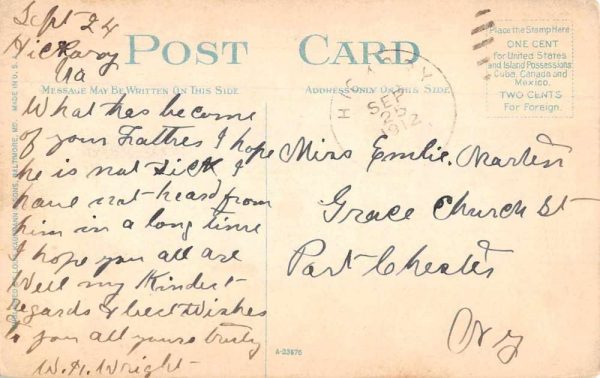 Sept 24
Hickory
Va
POST CARD
MESSAGE MAY BE WRITTEN ON THIS SIDE
ADDRESS ONLY ON THIS SIDE
Place the Stamp Here
ONE CENT
for United States
and Island Possessions
Cuba, Canada and
Mexico.
TWO CENTS
For Foreign.
HICKORY
SEP
25
1912
What has become
of your Fathres I hope
he is not Sick I
have not heard from
him in a long time
I hope you all are
Well my Kindest
regards & best Wishes
to you all yours truly
W. H. Wright
Miss Emilie Martin
Grace Church St
Port Chester
N Y
A-23676
BALTIMORE, MD.
MADE IN U. S. A.